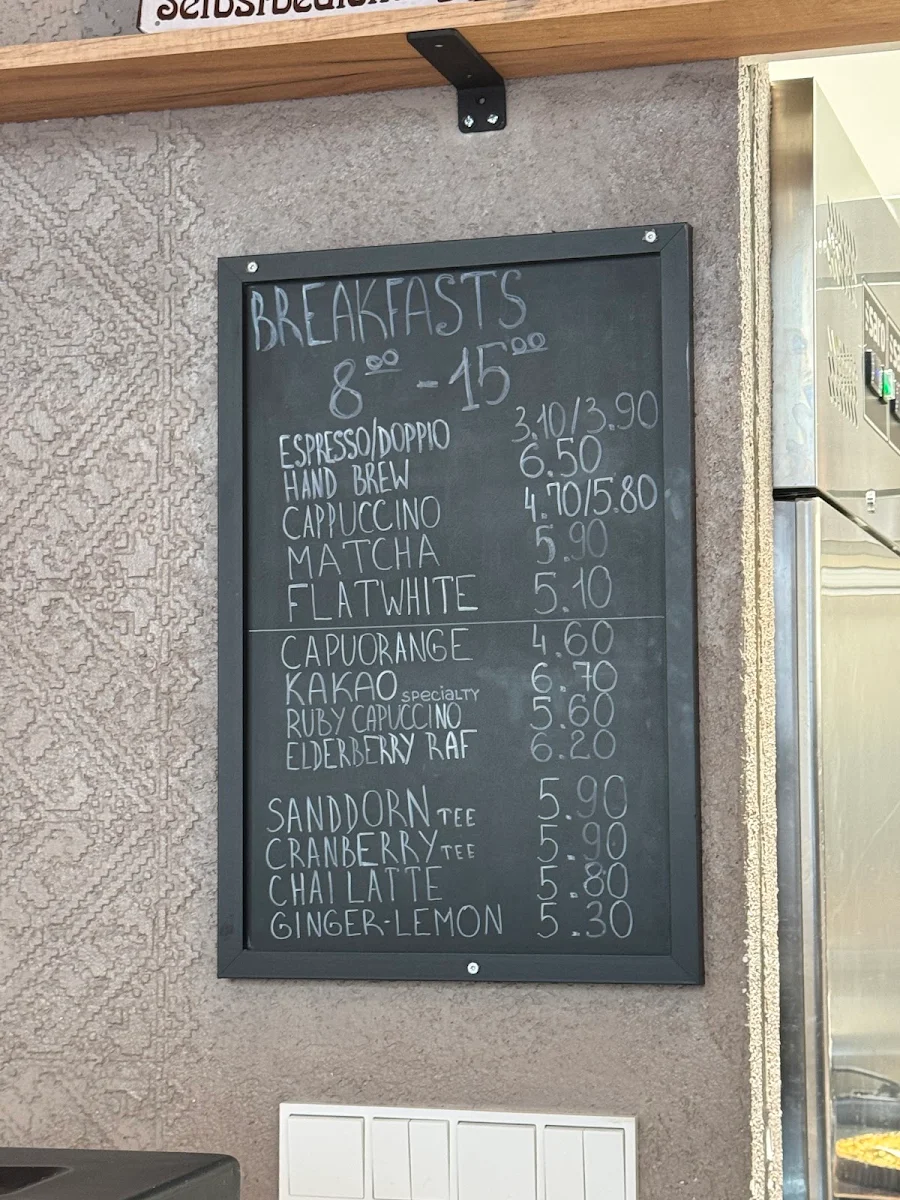 BREAKFASTS
8⁰⁰ - 15⁰⁰
ESPRESSO/DOPPIO 3.10/3.90
HAND BREW 6.50
CAPPUCCINO 4.70/5.80
MATCHA 5.90
FLATWHITE 5.10
CAPUORANGE 4.60
KAKAO SPECIALTY 6.70
RUBY CAPUCCINO 5.60
ELDERBERRY RAF 6.20
SANDDORN TEE 5.90
CRANBERRY TEE 5.90
CHAI LATTE 5.80
GINGER-LEMON 5.30